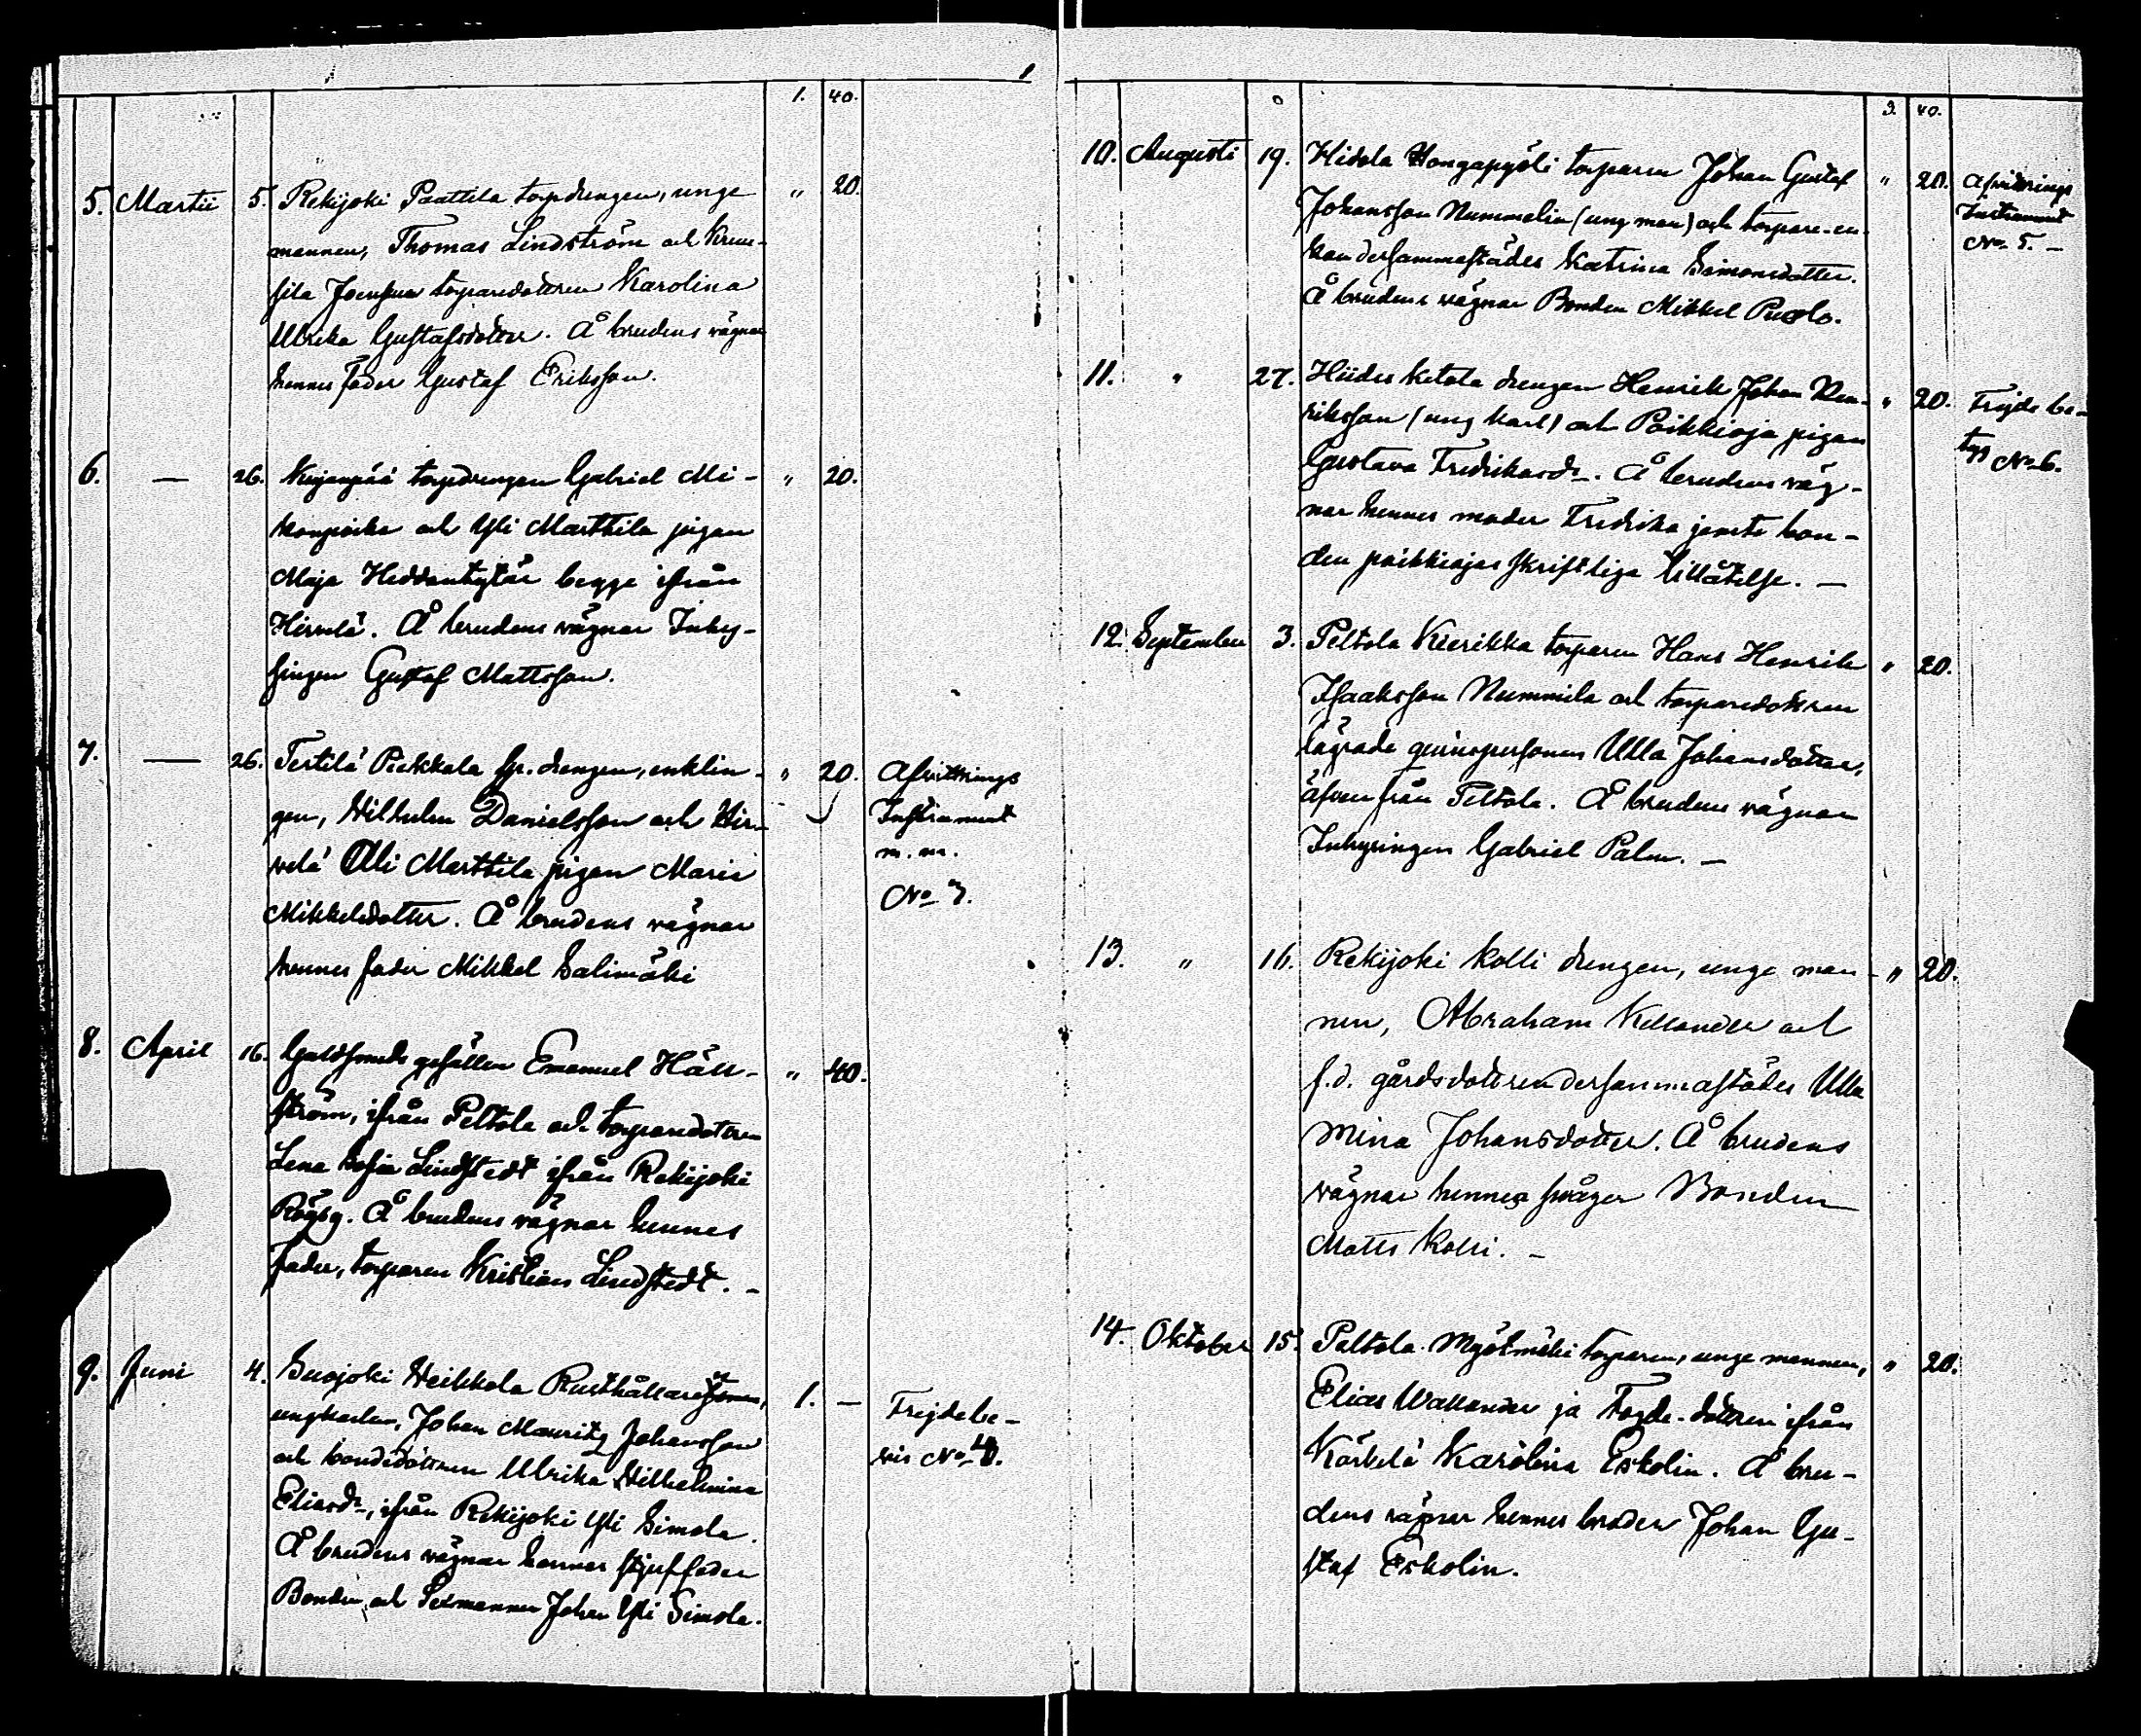 1. 40.
5. Martii 5. Rekijoki Paattila torpdrengen, unge " 20.
mannen, Thomas Lindström och Krum-
sila Joenpera torparedottren Karolina
Ulrika Gustafsdotter. Å brudens vägnar
hennes fader Gustaf Eriksson.
6. — 26. torpdrengen Gabriel Mi- " 20.
konpoika och Yli Marttila pigan
Maja Heddantytär begge ifrån
Hirvelä. Å brudens vägnar Inhy-
singen Gustaf Mattsson.
7. — 26. Tertilä Pietkkala sp. drengen, enklin- " 20. Afvittrings
gen, Wilhelm Danielsson och Hir- Instrument
velä Ali Marttila pigan Maria m. m.
Mikkelsdotter. Å brudens vägnar No 3.
hennes fader Mikkel Salimäki
8. April 16. Guldsmeds gesällen Emanuel Häll- " 40.
ström, ifrån Peltola och torparedottren
Lena Sofia Lindstedt ifrån Rekijoki
Å brudens vägnar hennes
fader, torparen Kristian Lindstedt. -
9. Juni 4. Suojoki Heikkola Rusthållaresonen, 1. — Frejdebe-
ungkarlen, Johan Mauritz Johansson vis No 4.
och bondedottren Ulrika Wilhelmina
Eliasdr, ifrån Rekijoki Yli Simola.
Å brudens vägnar hennes styffader
Bonden och Sexmannen Johan Yli Simola.
3. 40.
10. Augusti 19. Hidola Hongapyöli torparen Johan Gustaf " 20. Afvittrings
Johansson Nummelin (ung man) och torpare-en- Instrument
kan dersammastädes Katrina Simonsdotter. No 5. -
Å brudens vägnar Bonden Mikkel Puolo.
11. " 27. Hiides Ketola drengen Henrik Johan Hen- " 20. Frejde be-
riksson (ung karl) och Poikkioja pigan tyg No 6.
Gustava Fredrikasdr. Å brudens väg-
nar hennes moder Fredrika jemte bon-
den poikkiojas skriftliga tillåtelse. —
12. September 3. Peltola Kierikka torparen Hans Henrik " 20.
Isaaksson Nummila och torparedottren
lägrade qvinspersonen Ulla Johansdotter,
äfven från Peltola. Å brudens vägnar
Inhysingen Gabriel Palm. —
13. " 16. Rekijoki Kolli drengen, unge man- " 20.
nen, Abraham Kellander och
f.d. gårdsdottren dersammastädes Ulla
Mina Johansdotter. Å brudens
vägnar hennes svåger Bonden
Matts Kolli. —
14. Oktober 15. Peltola Myötmäki torparen, unge mannen, " 20.
Elias Wallander ja Fogde-dottren ifrån
Kärkelä Karolina Eskolin. Å bru-
dens vägnar hennes broder Johan Gu-
staf Eskolin.